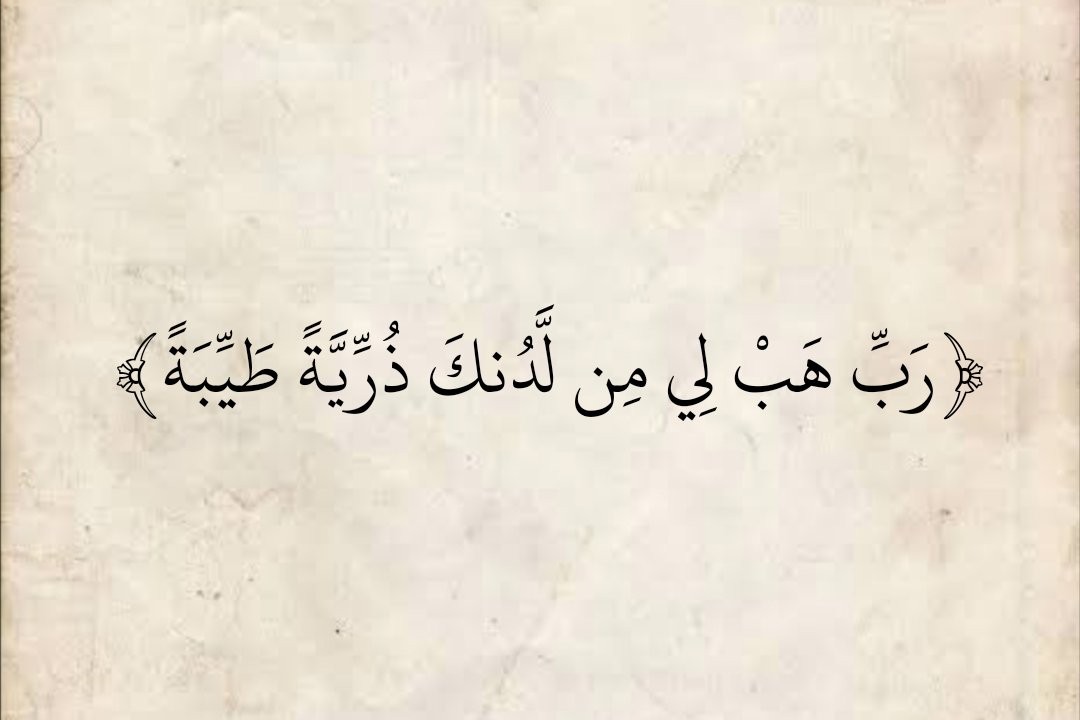 ﴿رَبِّ هَبْ لِي مِن لَّدُنكَ ذُرِّيَّةً طَيِّبَةً﴾